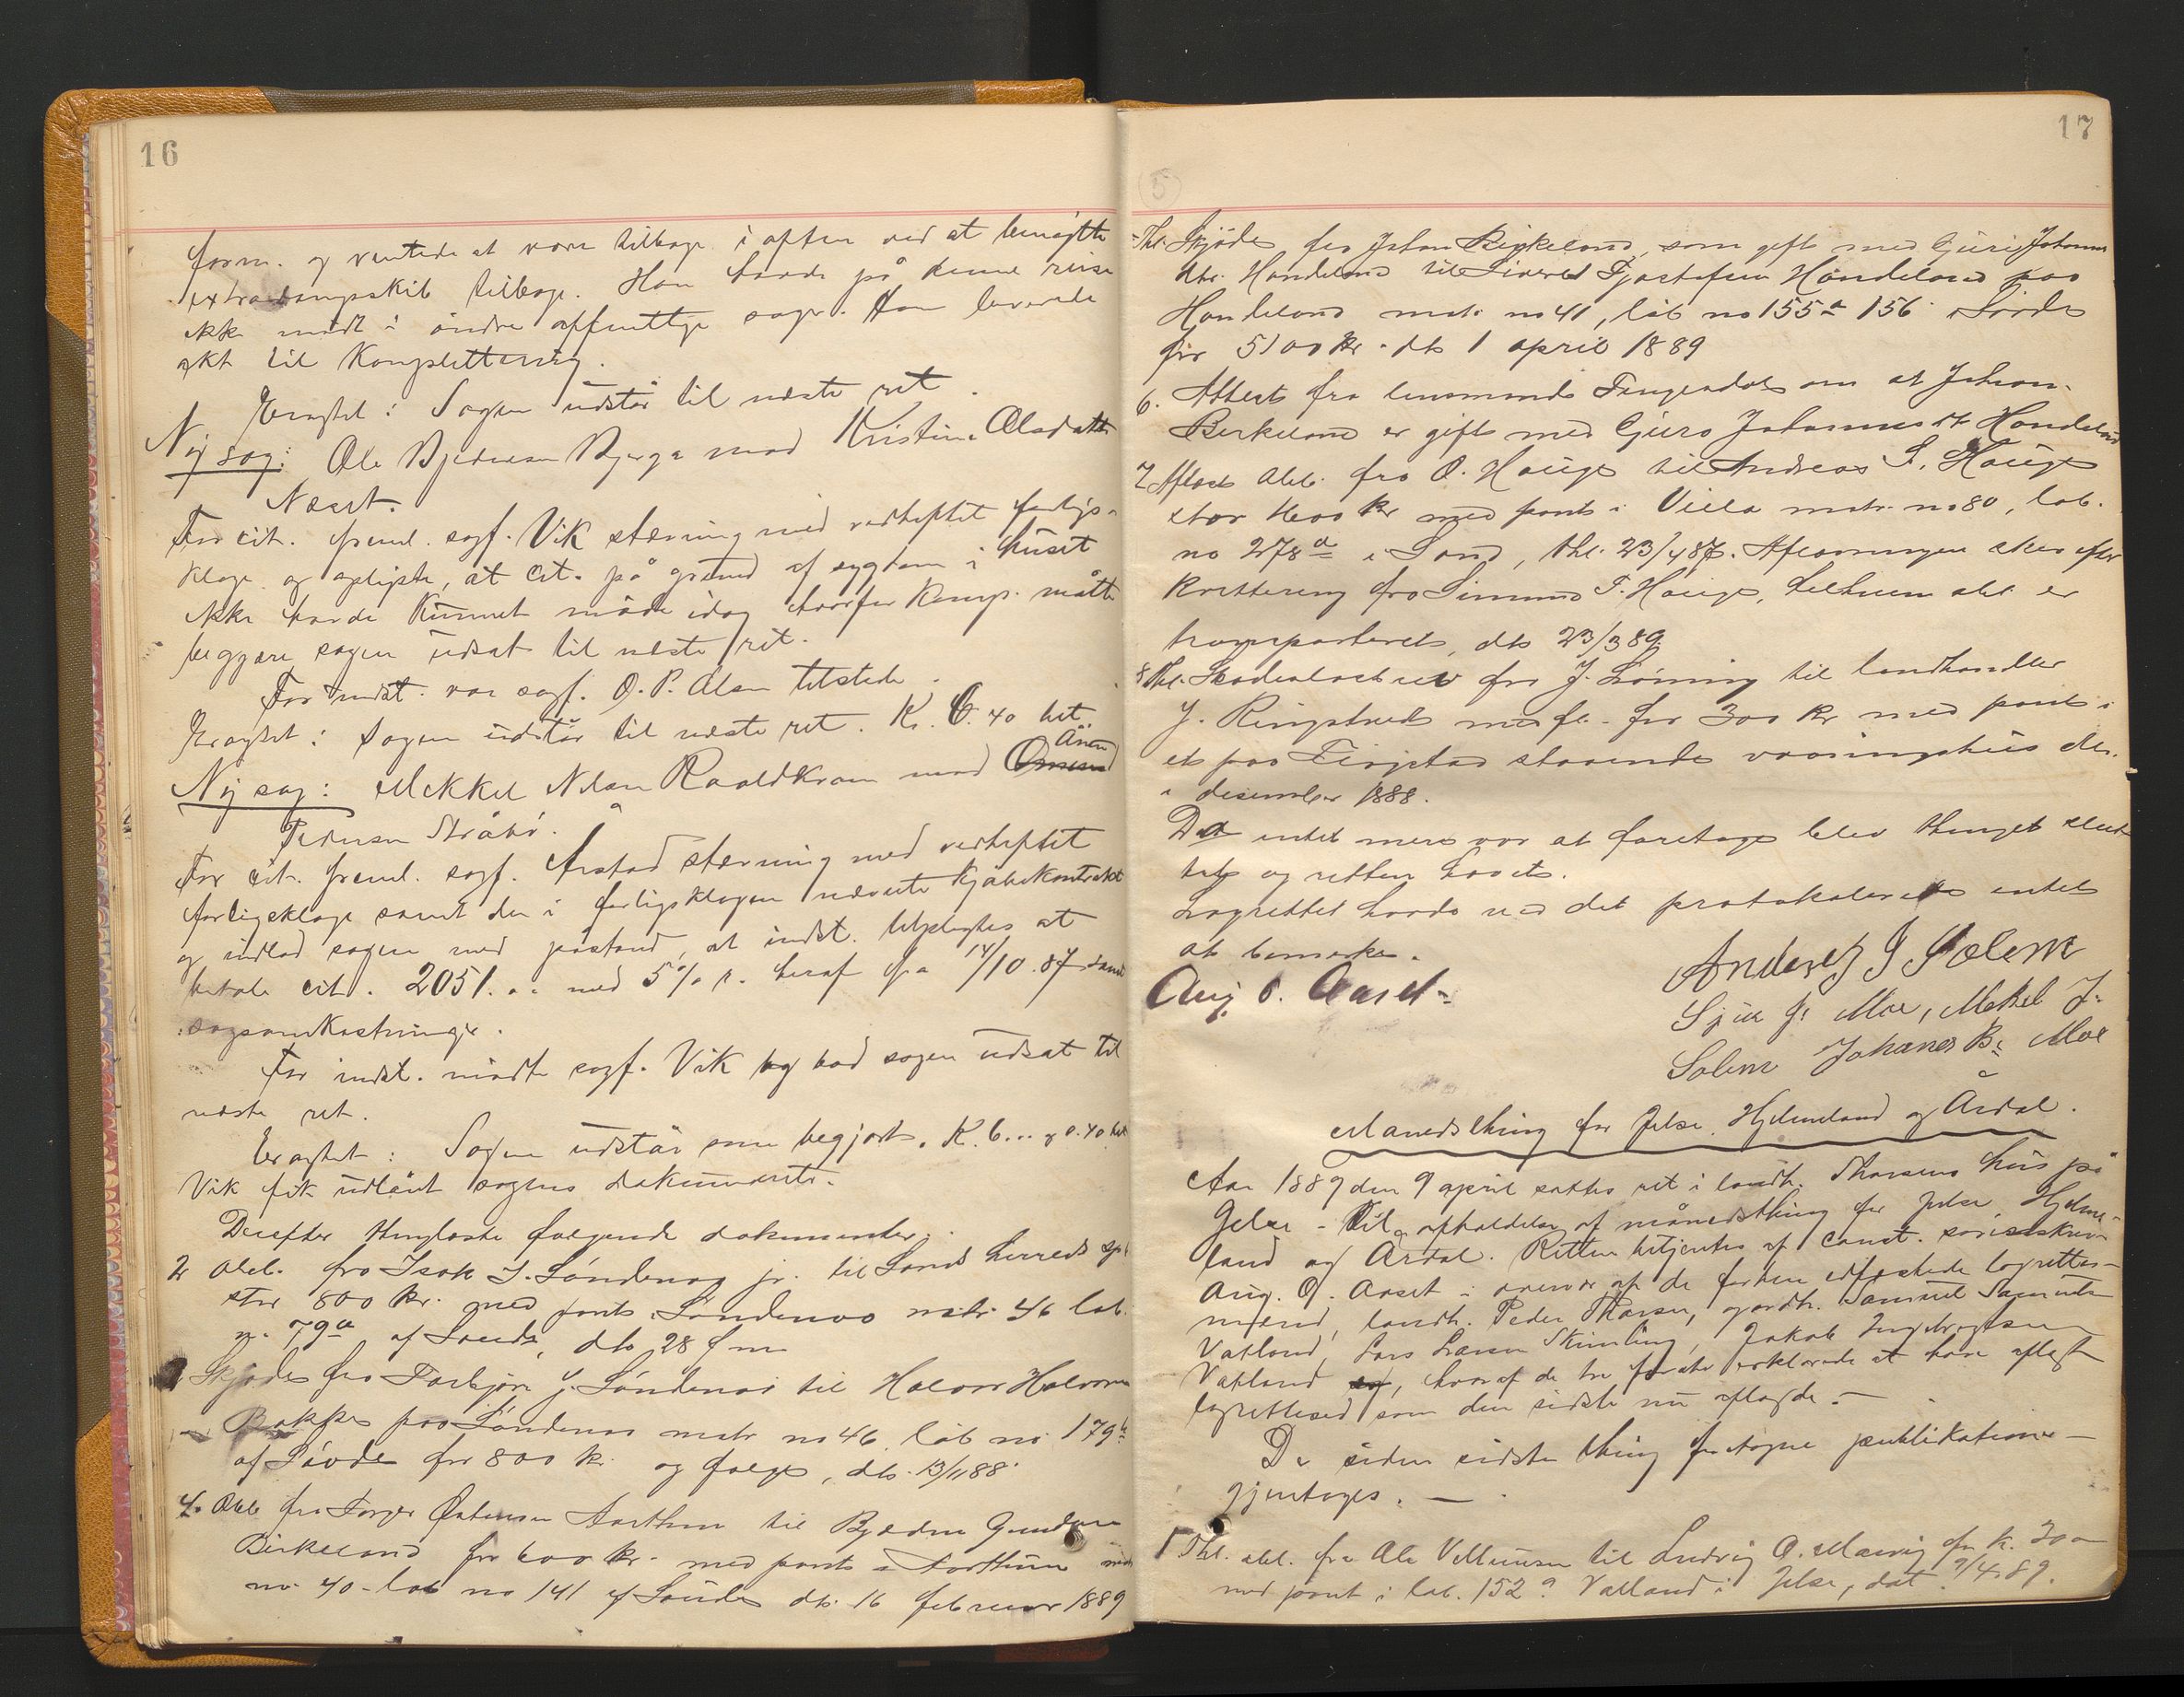 16
form. og ventede at være tilbage i aften ved at benytte
extradampskib tilbage. Han havde på denne reise
ikke mødt i andre offentlige sager. Han leverede
akt til Komplettering.
Eragtet: Sagen udstår til næste ret.
Ny sag: Ole Bjedersen Bjerga mod Kristine Olsdatter
Næset.
For cit. freml. sagf. Vik stævning med vedheftet forligs-
klage og oplyste, at cit. på grund af sygdom i huset
ikke havde kunnet møde idag hvorfor komp. måtte
begjære sagen udsat til næste ret.
For indst. var sagf. O. P. Olsen tilstede.
Eragtet: Sagen udstår til næste ret. Kr. 0.40 bet.
Ny sag: Mikkel Nilsen Raaldkvam mod Ånen
Pedersen Stråbø.
For cit. freml. sagf. Årstad stævning med vedheftet
forligsklage samt den i forligsklagen nævnte kjøbekontrakt
og indlod sagen med påstand, at indst. tilpligtes at
betale cit. 2051. med 5% r. heraf fra 14/10.87 samt
sagsomkostninger.
For indst. mødte sagf. Vik og bad sagen udsat til
næste ret.
Eragtet: Sagen udstår som begjært. K. 6... og 0.40 bet
Vik fik udlånt sagens dokumenter.
Derefter thinglæste følgende dokumenter.
2 Obl. fra Isak I. Søndenaa jr. til Sands herreds sp.
stor 800 kr. med pant i Søndenaa matr. 46 løb.
79a af Saude, dt. 28 f m
Skjøde fra Torbjørn J. Søndenaa til Halvor Halvorsen
Bakke paa Søndenaa matr no 46. løb no. 179b
af Søvde for 800 kr. og følge, dt. 13/11 88.
4. Obl fra Torger Østensen Aarthun til Bjedne Gundersen
Birkeland for 600 kr. med pant i Aarthun matr
no. 40 - løb no 141 af Saude dt. 16 februar 1889
17
5
Thl. Skjøde fra Johan Birkeland, som gift med Guri Johannes
dtr. Handeland til Sivert Tjostofsen Handeland paa
Handeland matr. no 41, løb no 155a 156 i Søvde
for 5100 kr. dt. 1 april 1889
6. Attest fra lensmand Fingerdal om at Johan
Birkeland er gift med Guro Johannesdt Handeland
7 Aflæst obl. fra O. Hauge til Andreas S. Hauge
stor 1600 kr med pant i Villa matr. no 80, løb.
no 278a i Sand, thl. 23/4 87. Aflæsningen sker efter
kvittering fra Simund T. Hauge, tilhvem obl er
transporteret, dt. 23/3 89
8 Thl. Skadesløsbrev fra J. Løning til landhandler
J. Ringstved med fl. for 300 kr med pant i
et paa Fiigstad staaende vaaningshus dt.
i desember 1888.
Da intet mere var at foretage blev thinget slut-
tet og retten hævet.
Lagrettet havde ved det protokolerede intet
at bemerke.
Anders J Solem
Aug. O. Aaset.
Sjur J. Moe, Mekel J.
Solem Johanes B. Moe
Manedsthing for Jelse, Hjelmeland og Årdal.
Aar 1889 den 9 april sattes ret i landh. Thorsens hus på
Jelse - Til afholdelse af månedsthing for Jelse, Hjelme-
land og Årdal. Retten betjentes af const. sorenskriver
Aug. O. Aaset i overvær af de forhen edfæstede lagrettes-
mænd, landh. Peder Thorsen, gårdbr. Samuel Samuelsen
Vatland, Lars Larsen Skimling, Jakob Ingebrigtsen
Vatland, hvoraf de tre første erklærede at have aflagt
lagretteseed som den sidste nu aflagde. -
De siden sidste thing foretagne publikationer
gjentages. -
1 Thl. obl. fra Ole Villumsen til Ludvig O. Marvig for k. 300
med pant i løb. 152a Vatland i Jelse, dat 9/4.89.